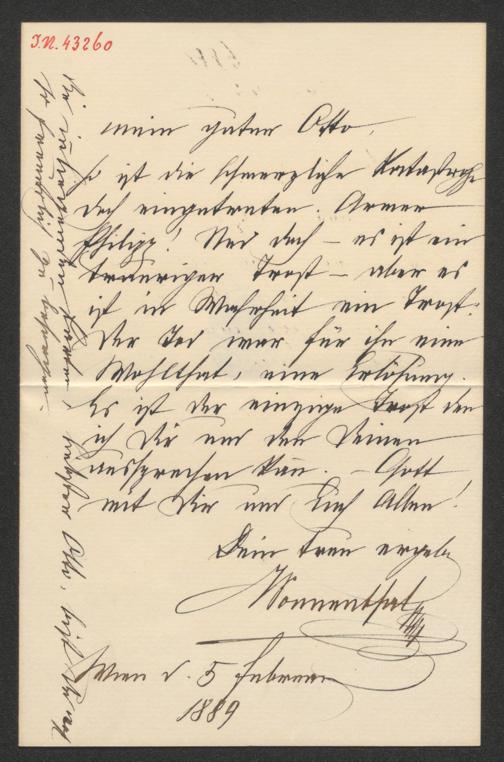 J.N. 43260
mein guter Otto,
So ist die schmerzliche Katastrophe
doch eingetreten. Armer
Philipp! Und doch – es ist ein
trauriger Trost – aber es
ist in Wahrheit ein Trost:
Der Tod war für ihn eine
Wohlthat, eine Erlösung.
Es ist der einzige Trost den
ich Dir und den Deinen
aussprechen kan̄. – Gott
mit Dir und Euch Allen!
Dein treu ergeb.
Sonnenthal
Wien d. 5 Februar
1889